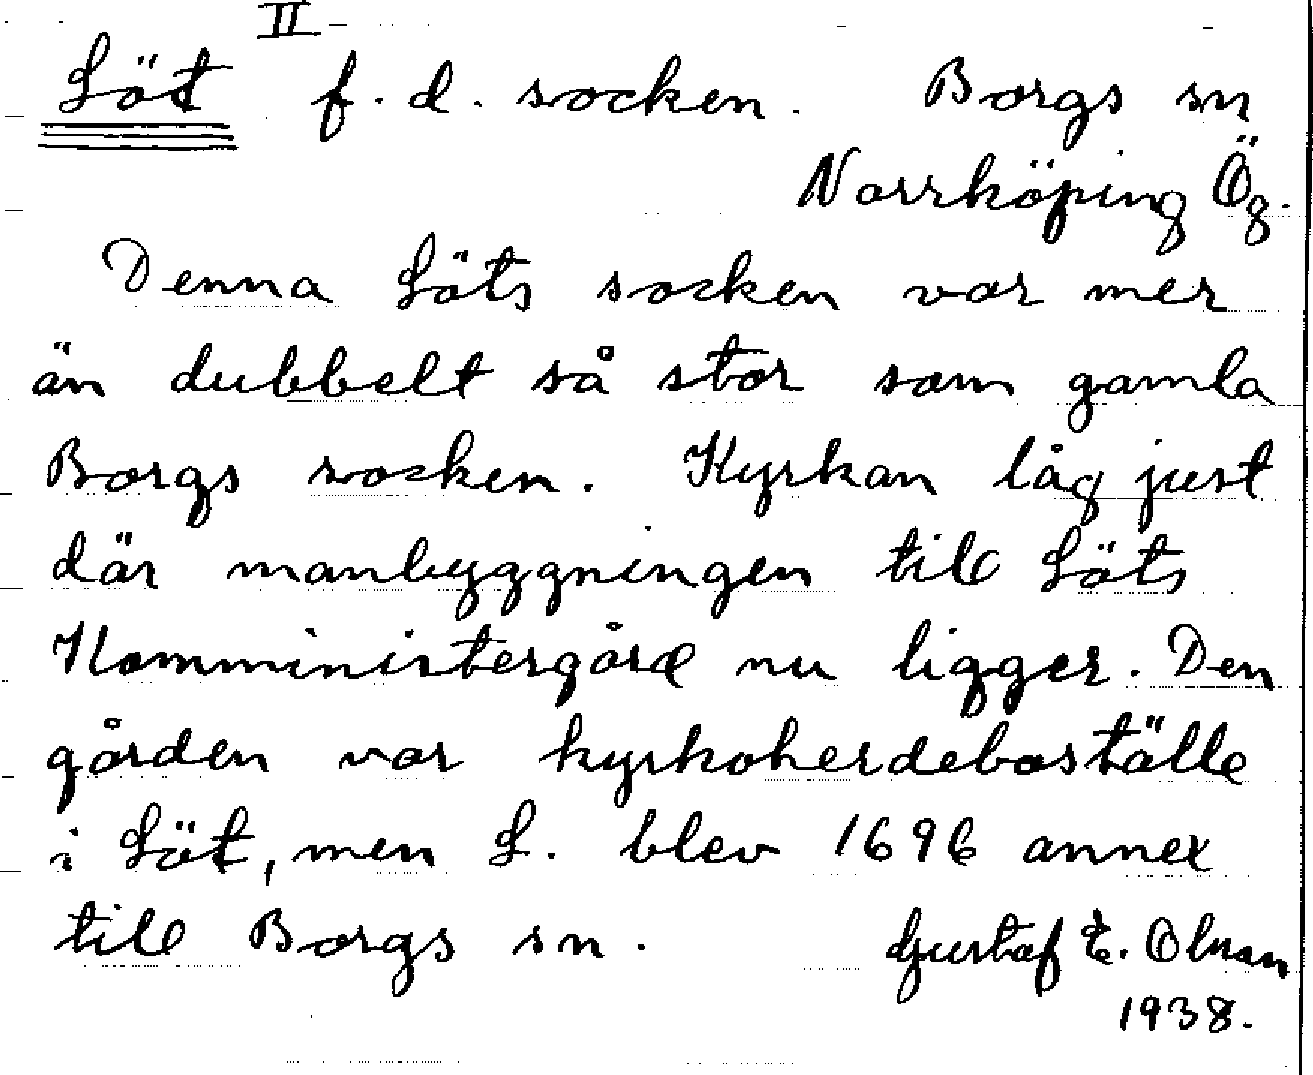 II
Löt f. d. socken. Borgs sn
Norrköping Ög.
Denna Löts socken var mer
än dubbelt så stor som gamla
Borgs socken. Kyrkan låg just
där manbyggningen till Löts
Komministergård nu ligger. Den
gården var kyrkoherdeboställe
i Löt, men L. blev 1696 annex
till Borgs sn. Gustaf E. Olsson
1938.